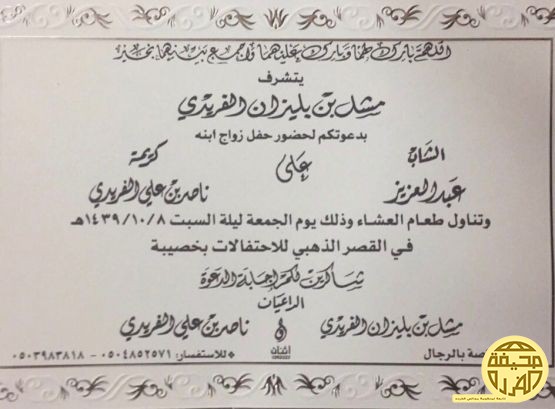 اللهم بارك لهما وبارك عليهما واجمع بينهما بخير
يتشرف
مشل بن بليزان الفريدي
بدعوتكم لحضور حفل زواج ابنه
الشاب على كريمة
عبدالعزيز ناصر بن علي الفريدي
وتناول طعام العشاء وذلك يوم الجمعة ليلة السبت ١٤٣٩/١٠/٨هـ
في القصر الذهبي للاحتفالات بخصيبة
شاكرين لكم إجابة الدعوة
الراعيان
مشل بن بليزان الفريدي ناصر بن علي الفريدي
صة بالرجال أفنان للاستفسار: ٠٥٠٤٨٥٢٥٧١ - ٠٥٠٣٩٨٣٨١٨
صحيفة